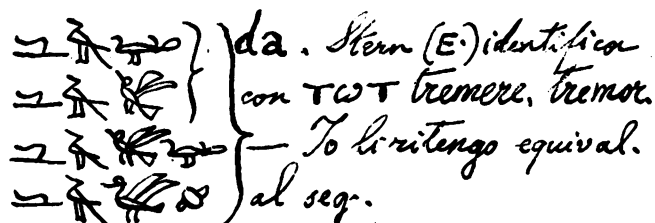 da. Stern (E.) identifica
con ⲧⲱⲧ tremere, tremor.
— Io li ritengo equival.
al seg.